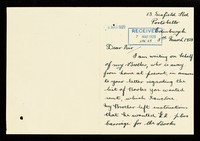 13 Seafield Rd
Portobello
Edinburgh
RECEIVED
March 1920
Dear Sir,
I am writing on behalf
of my Brother, who is away
from home at present, in answer
to your letter regarding the
list of Books you wanted
sent, which I enclose
My Brother left instructions
that he wanted £2 plus
carriage for the Books